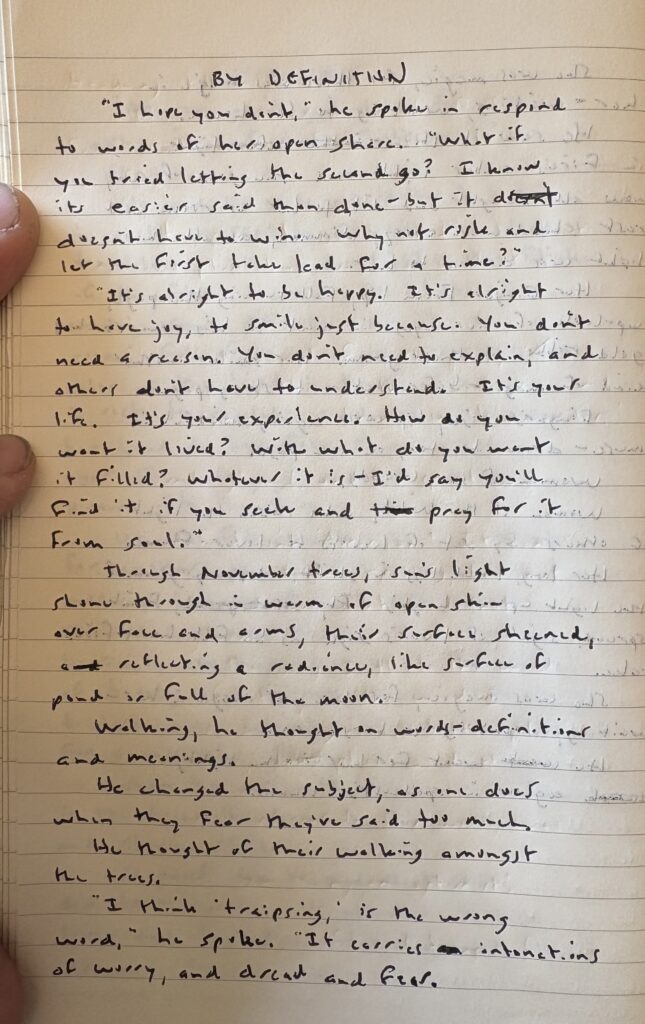 BY DEFINITION
"I hope you don't," he spoke in respond
to words of her open share. "What if
you tried letting the second go? I know
its easier said than done - but it doesnt
doesn't have to win. Why not risk and
let the first take lead for a time?"
"It's alright to be happy. It's alright
to have joy, to smile just because. You don't
need a reason. You don't need to explain, and
others don't have to understand. It's your
life. It's your experience. How do you
want it lived? With what do you want
it filled? Whatever it is - I'd say you'll
find it if you seek and pray for it
from soul."
Through November trees, sun's light
shone through in warm of open skin
over face and arms, their surface sheened,
and reflecting a radience, like surface of
pond in full of the moon.
Walking, he thought on words - definitions
and meanings.
He changed the subject, as one does
when they fear they've said too much.
He thought of their walking amongst
the trees.
"I think 'traipsing,' is the wrong
word," he spoke. "It carries intonations
of worry, and dread and fear.